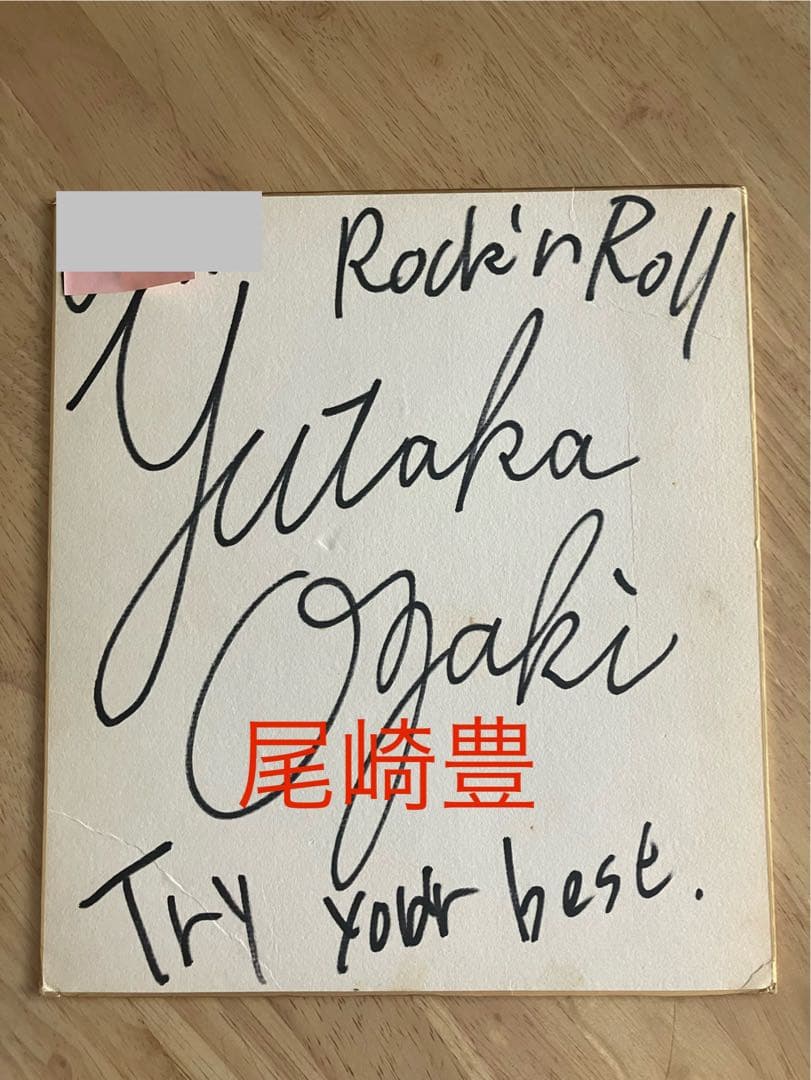 Rock'n Roll
Yutaka
Ozaki
尾崎豊
Try your best.